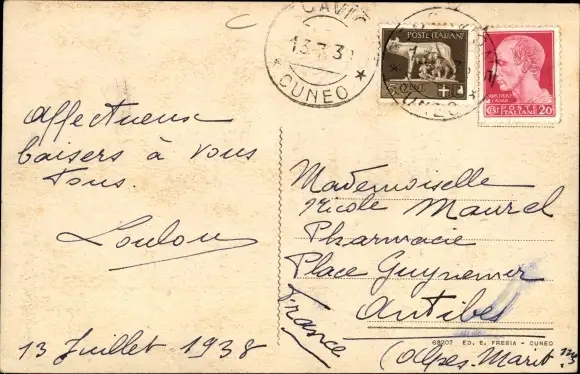 13.7.38
CUNEO
POSTE ITALIANE
CENT.
POSTE
ITALIANE
20
Affectueux
baisers à vous
tous.
Loulou
13 Juillet 1938
Mademoiselle
Nicole Maurel
Pharmacie
Place Guynemer
Antibes
France
(Alpes-Marit mes
68207 ED. E. FRESIA - CUNEO